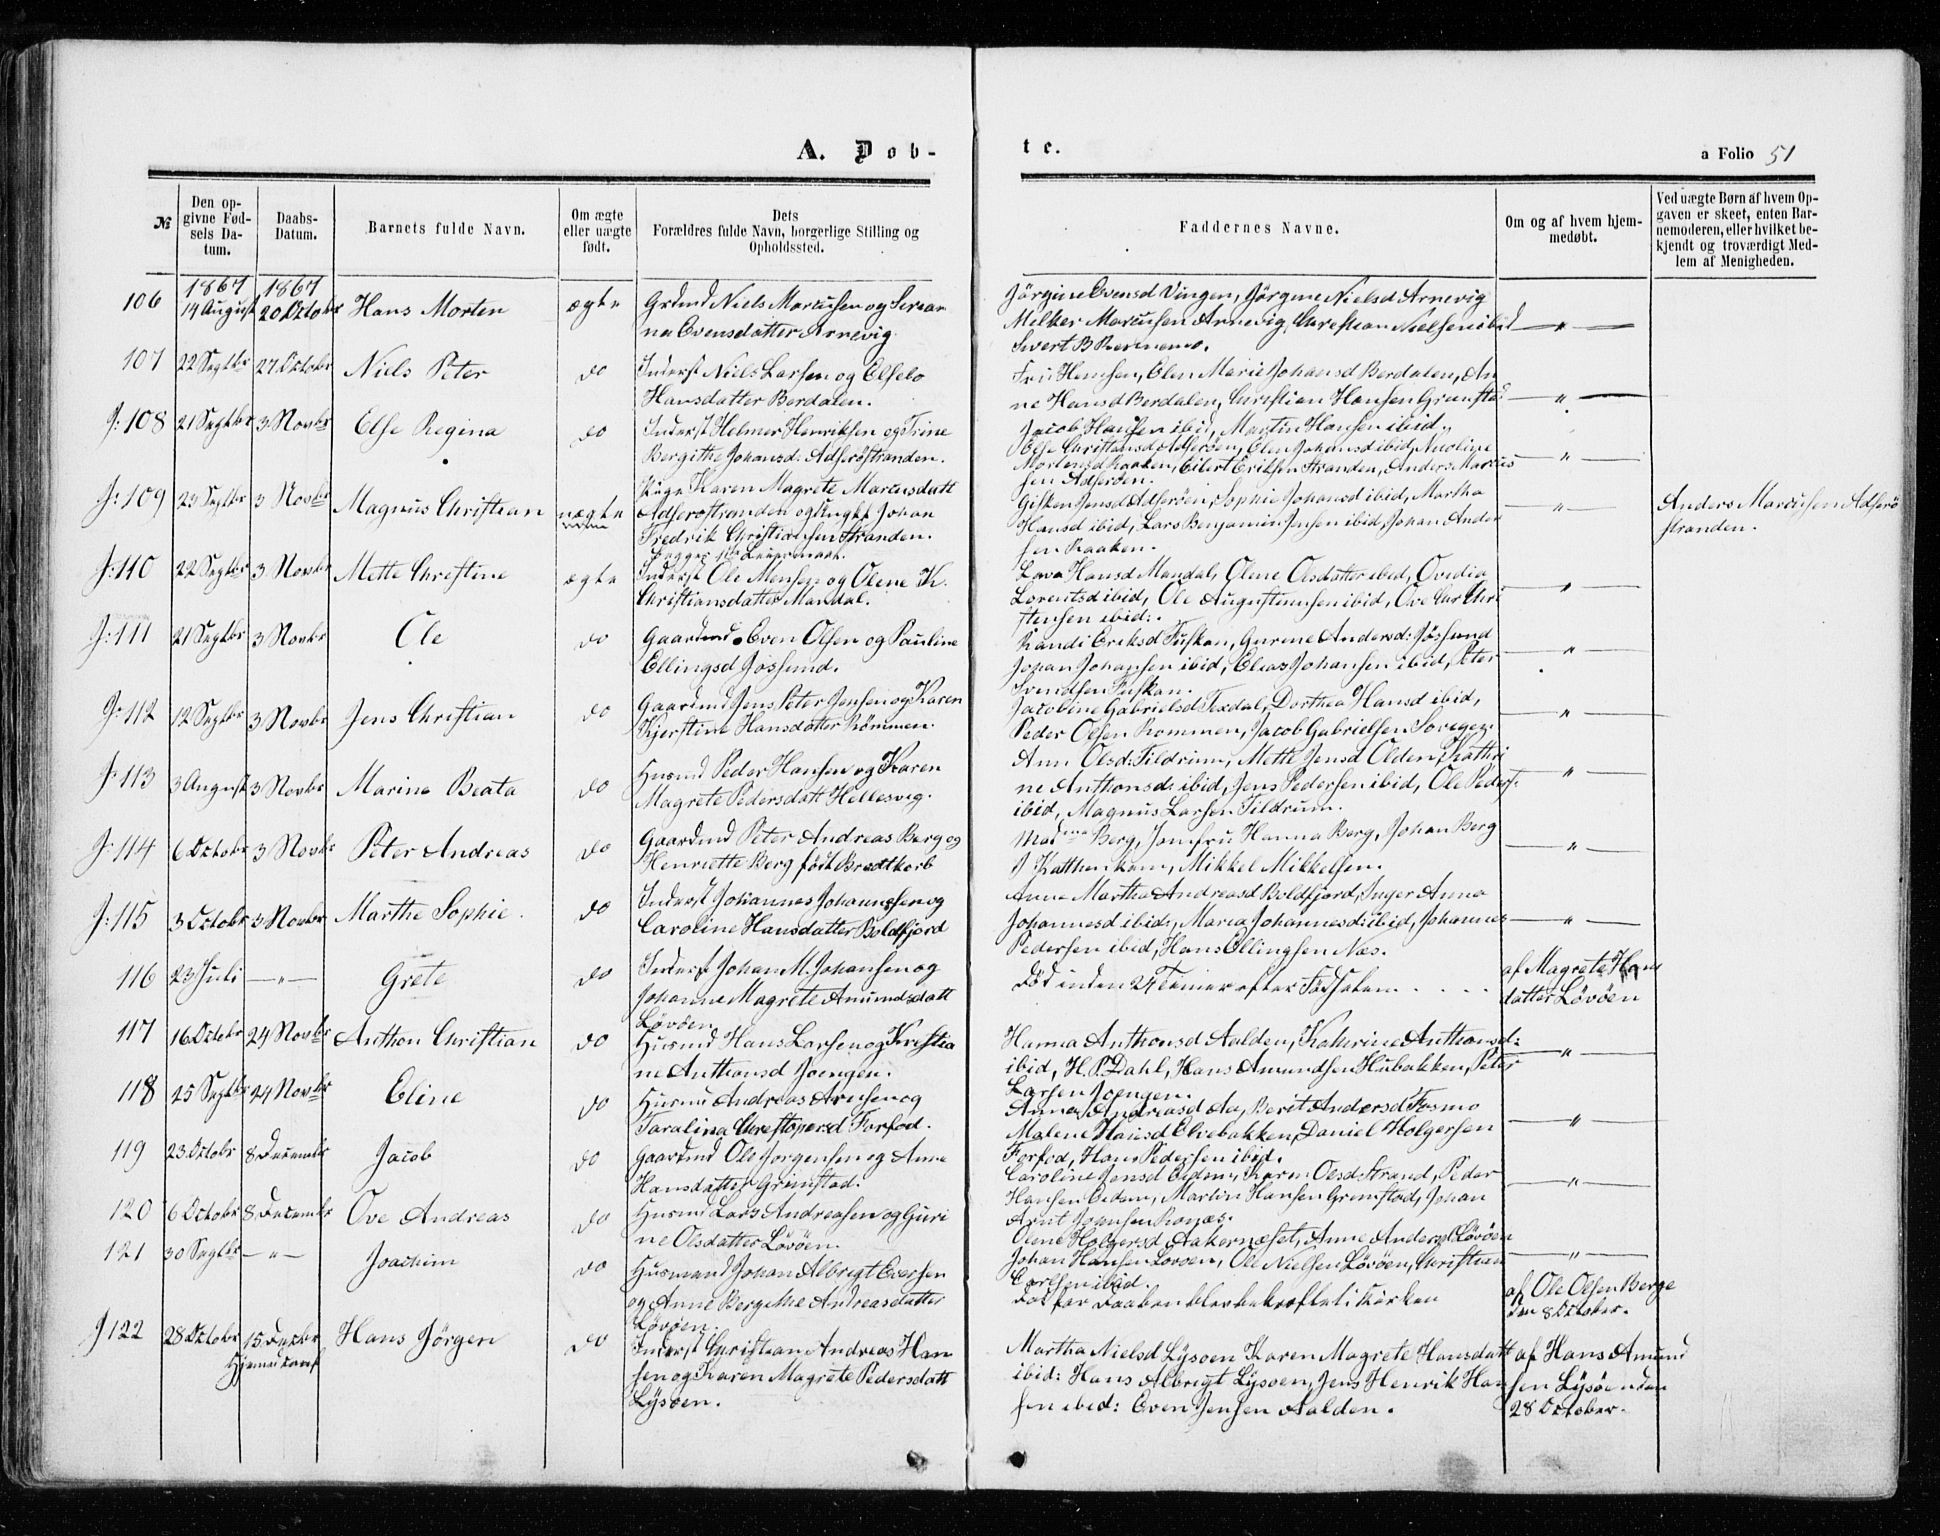 A. Døb-
te.
a Folio 51
№
Den op-
givne Fød-
sels Da-
tum.
Daabs-
Datum.
Barnets fulde Navn.
Om ægte
eller uægte
født.
Dets
Forældres fulde Navn, borgerlige Stilling og
Opholdssted.
Faddernes Navne.
Om og af hvem hjem-
medøbt.
Ved uægte Børn af hvem Op-
gaven er skeet, enten Bar-
nemoderen, eller hvilket be-
kjendt og troværdigt Med-
lem af Menigheden.
1867 1867
106 14 August 20 Octobr Hans Morten ægte
Grdmd Niels Marcusen og Serian
na Evensdatter Arnevig
Jörgine Evensd Vingen, Jörgine Nielsd Arnevig
Melker Marcusen Arnevig, Christian Nielsen ibid
Sivert B
107 22 Septbr 27 Octobr Niels Peter do
Inderst Niels Larsen og Elsebo
Hansdatter Berdalen.
Fru Hemsen, Elen Marie Johansd Berdalen, An
ne Hansd Berdalen, Christian Hansen Gramstad
Jacob Hansen ibid, Martin Hansen ibid.
J: 108 21 Septbr 3 Novbr Else Regina do
Inderst Helmer Henriksen og Trine
Bergithe Johansd: Adseröstranden.
Else Christiansd Adseröen, Elen Johansd ibid, Nicoline
Mortensd Raaken, Eilert Eriksen Stranden, Anders Marcus
sen Adseröen.
J: 109 23 Septbr 3 Novbr Magnus Christian uægte
Pige Karen Magrete Marcusdatt
Adseröstranden og Ungkf Johan
Fredrik Christiansen Stranden.
Begges 1ste Leiermaal.
Gisken Jensd Adseröen, Sophie Johansd ibid, Martha
Hansd ibid, Lars Benjamin Jensen ibid, Johan Ander
sen Raaken.
Anders Marcusen Adserö
stranden.
J: 110 22 Septbr 3 Novbr Mette Christine ægte
Inderst Ole Monsen og Olene K.
Christiansdatter Mandal.
Lava Hansd Mandal, Olene Olsdatter ibid, Ovedia
Lorentsd ibid, Ole Augustinusen ibid, Ove Chri
stensen ibid:.
J: 111 21 Septbr 3 Novbr Ole do
Gaardmd Even Olsen og Pauline
Ellingsd Jössund.
Randi Eriksd Fuskan, Gurine Andersd: Jössund
Johan Johansen ibid, Elias Johansen ibid, Peter
Svendsen Fuskan.
J: 112 12 Septbr 3 Novbr Jens Christian do
Gaardmd Jens Peter Jensen og Karen
Kjerstine Hansdatter Römmen.
Jacobine Gabrielsd Texdal, Dorthea Hansd ibid,
Peder Olsen Rommen, Jacob Gabrielsen
J: 113 3 August 3 Novbr Marine Beata do
Husmd Peder Hansen og Karen
Magrete Pedersdatt Hellesvig.
Ann Olsd: Tildrum, Mette Jensd Olden, Kathri
ne Anthonsd: ibid, Jens Pedersen ibid, Ole Peders:
ibid, Magnus Larsen Tildrum.
J: 114 6 Octobr 3 Novbr Peter Andreas do
Gaardmd Peter Andreas Berg og
Henriette Berg född Bredtkorb
Madme Berg, Jomfru Hanna Berg, Johan Berg
J Katthenkam, Mikkel Mikkelsen.
J: 115 3 Octobr 3 Novbr Marthe Sophie. do
Inderst Johannes Johannesen og
Caroline Hansdatter Boldfjord
Anne Martha Andreasd Boldfjord, Inger Anna
Johannesd ibid:, Maria Johannesd: ibid, Johannes
Pedersen ibid, Hans Ellingsen Næs.
116 23 Juli —"— Grete do
Inderst Johan M. Johansen og
Johanne Magrete Amundsdatt
Lövöen
Död inden 24 Timer efter Födselen
af Magrete Hans
datter Lövöen
117 16 Octobr 24 Novbr Anthon Christian do
Husmd Hans Larsen og Kristia
ne Anthonsd Joengen.
Hanna Anthonsd Aalden, Katerine Anthonsd:
ibid, H. P. Dahl, Hans Amundsen Hubakken, Peter
Larsen Joengen.
118 25 Septbr 24 Novbr Eline do
Husmd Andreas Arnesen og
Taralina Christophersd Forfod.
Anna Andreasd Aa, Berit Andersd Fosmo
Malene Hansd Elvebakken, Daniel Holgersen
Forfod, Hans Pedersen ibid.
119 23 Octobr 8 December Jacob do
Gaardmd Ole Jorgensen og Anne
Hansdatter Gremstad.
Caroline Jensd Eidem, Karen Olsd Strand, Peder
Hansen Eidem, Martin Hansen Gremstad, Johan
Arnt Johnsen
120 6 Octobr 8 December Ove Andreas do
Husmd Lars Andreasen og Guri
ne Olsdatter Lövöen.
Olene Holgersd Aakernæset, Anne Andersd Lövöen
Johan Hansen Lovoen, Ole Nielsen Lövöen, Christian
Carlsen ibid.
121 30 Septbr —"— Joachim do
Husmand Johan Albrigt Eversen
og Anne Bergithe Andreasdatter
Lövöen.
Död før Daaben blev bekræftet i Kirken
af Ole Olsen Berge
den 8 October.
J 122 28 Octobr 15 Decbr Hans Jörgen do
Hjemmedøbt
Inderst Christian Andreas Han
sen og Karen Magrete Pedersdatt
Lysöen.
Martha Nielsd Lysoen Karen Magrete Hansdatt
ibid: Hans Albrigt Lysoen, Jens Henrik Han
sen ibid: Even Jensen Aalden.
af Hans Amund
sen Lysöen den
28 October.